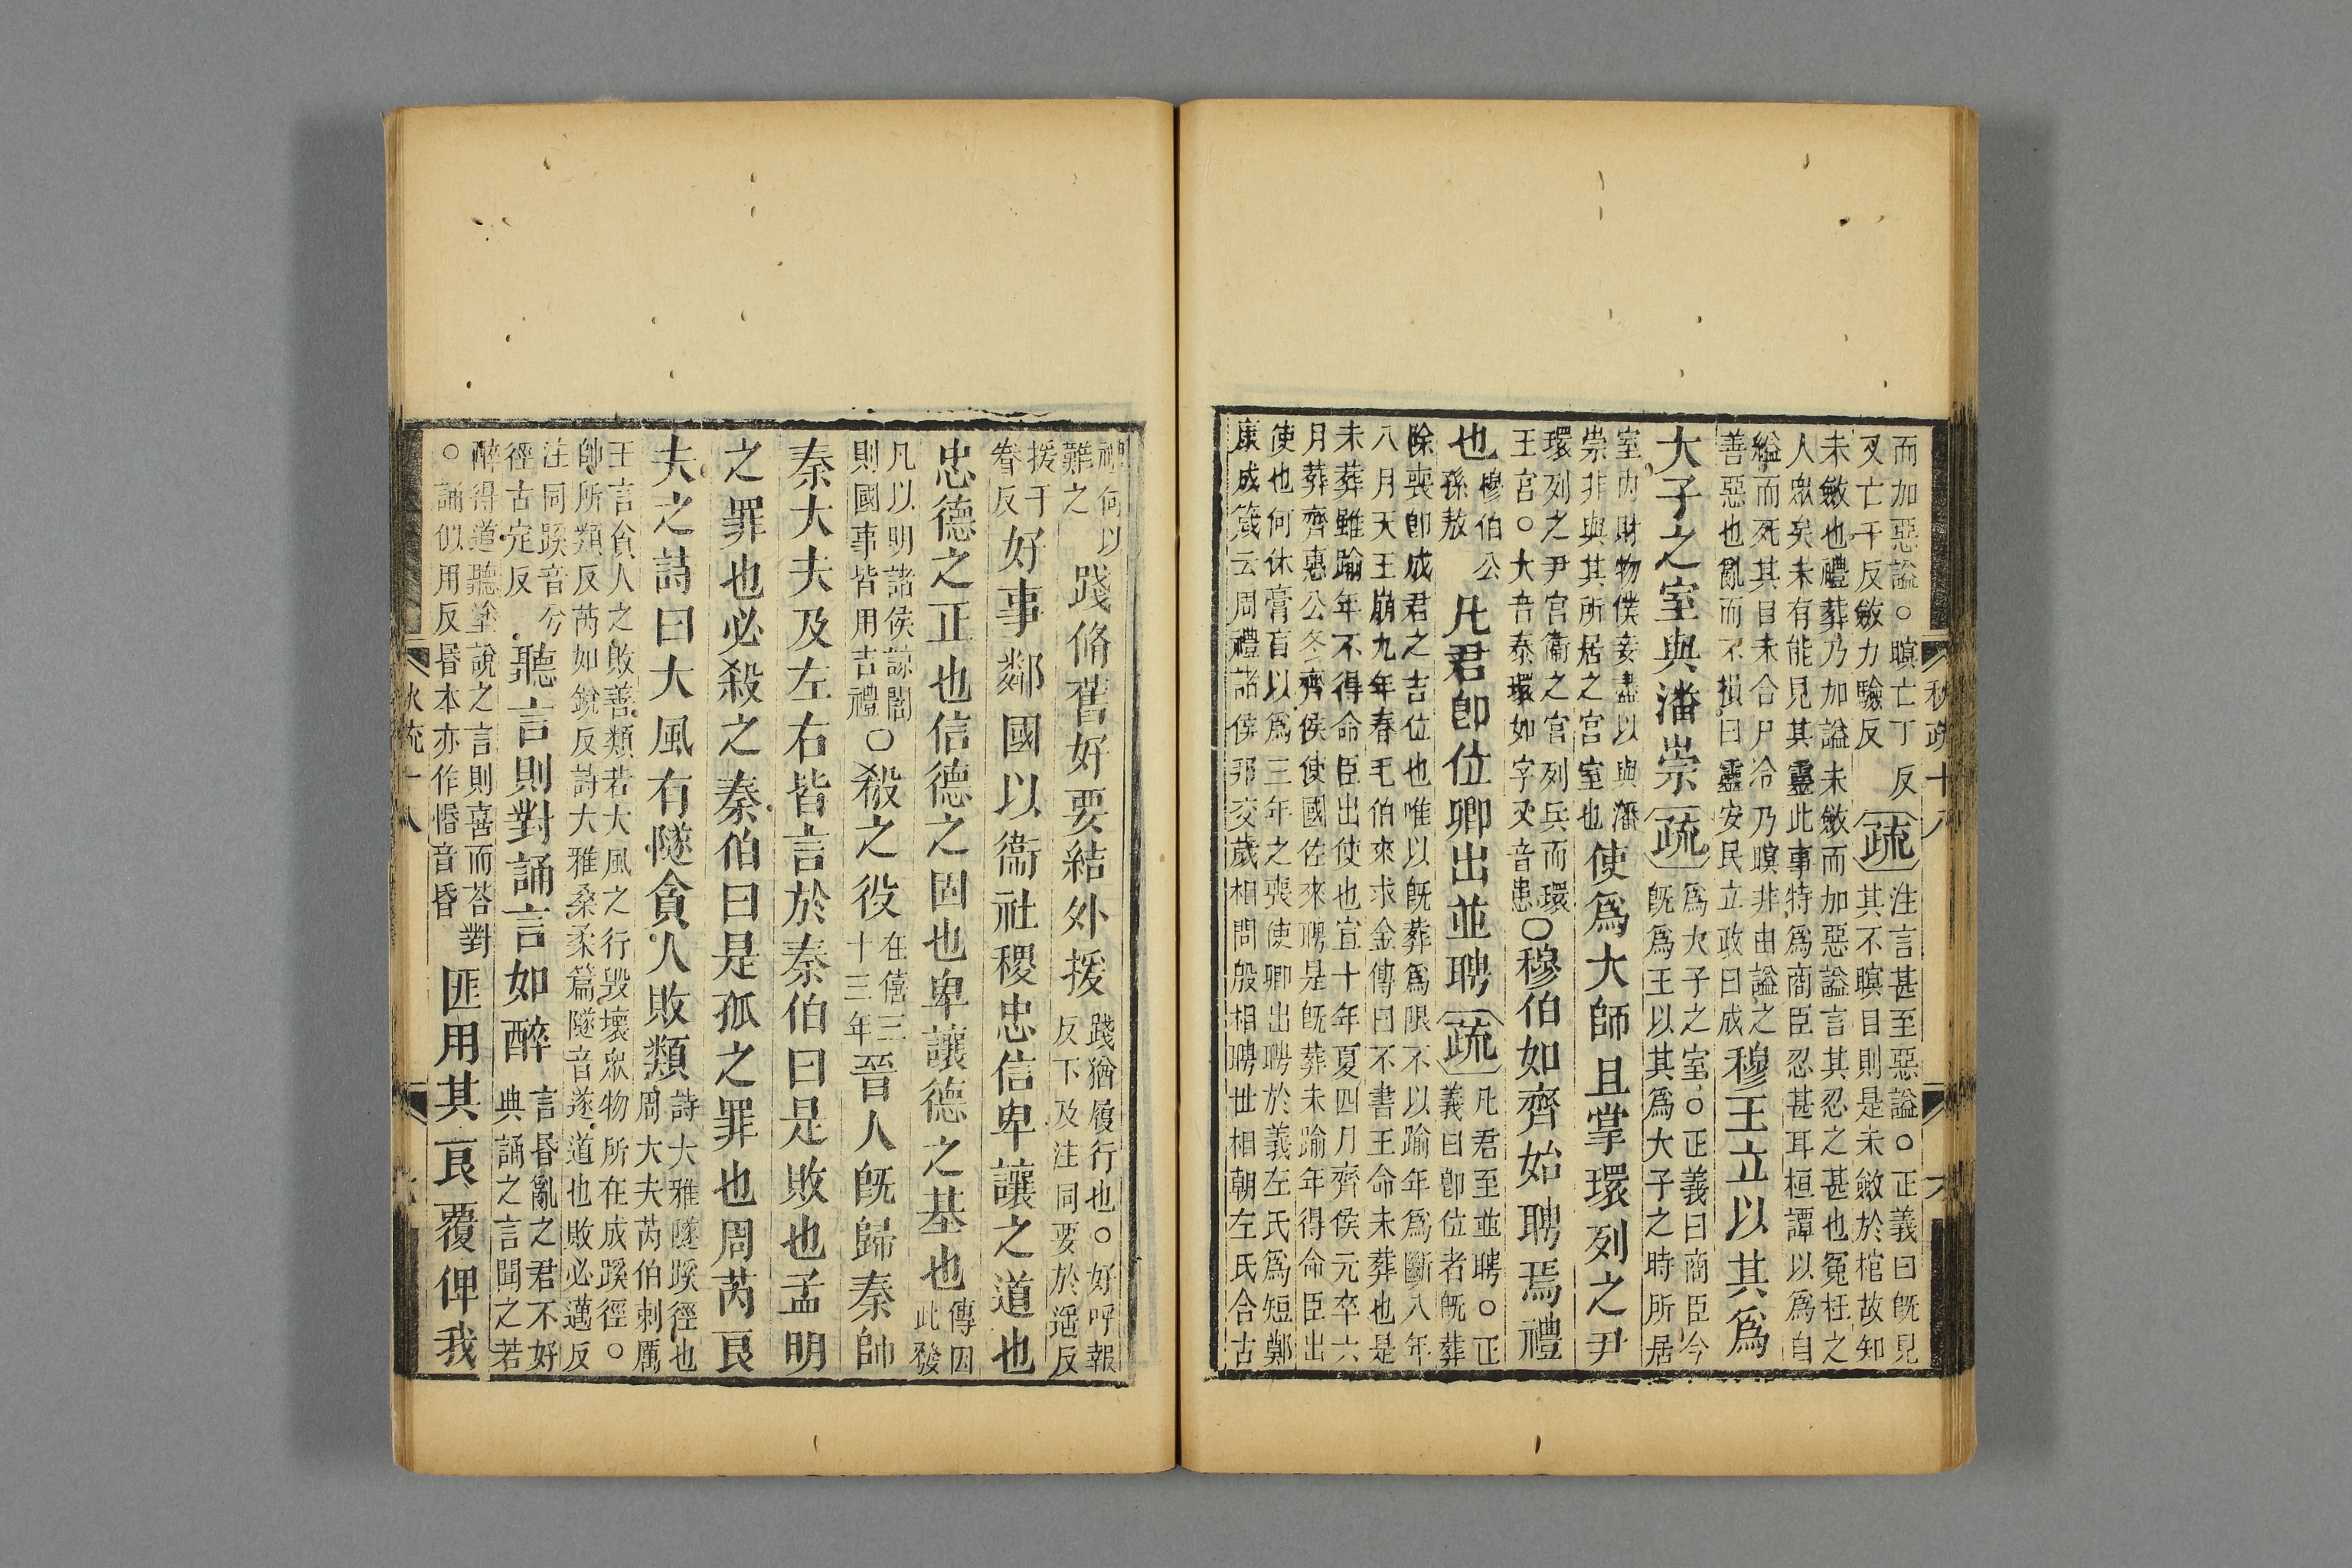 而加惡謚○瞑亡丁反
又亡千反斂力驗反
疏
注言甚至惡謚○正義曰既見
其不瞑目則是未斂於棺故知
未斂也禮葬乃加謚未斂而加惡謚言其忍之甚也冤枉之
人眾矣未有能見其靈此事特為商臣忍甚耳桓譚以為自
縊而死其目未合尸冷乃瞑非由謚之
善惡也亂而不損曰靈安民立政曰成
穆王立以其爲
大子之室與潘崇
疏
爲大子之室○正義曰商臣今
既爲王以其爲大子之時所居
室內財物僕妾盡以與潘
崇非與其所居之宮室也
使爲大師且掌環列之尹
環列之尹宮衞之官列兵而環
王宮○大音泰環如字又音患
○穆伯如齊始聘焉禮
也
穆伯公
孫敖
凡君卽位卿出並聘
疏
凡君至並聘○正
義曰卽位者既葬
除喪卽成君之吉位也唯以既葬爲限不以踰年爲斷八年
八月天王崩九年春毛伯來求金傳曰不書王命未葬也是
未葬雖踰年不得命臣出使也宣十年夏四月齊侯元卒六
月葬齊惠公冬齊侯使國佐來聘是既葬未踰年得命臣出
使也何休膏肓以爲三年之喪使卿出聘於義左氏爲短鄭
康成箴云周禮諸侯邦交歲相問殷相聘世相朝左氏合古
禮何以
難之
踐脩舊好要結外援
踐猶履行也○好呼報
反下及注同要於遥反
援于
眷反
好事鄰國以衞社稷忠信卑讓之道也
忠德之正也信德之固也卑讓德之基也
傳因
此發
凡以明諸侯諒闇
則國事皆用吉禮
○殽之役
在僖三
十三年
晉人既歸秦師
秦大夫及左右皆言於秦伯曰是敗也孟明
之罪也必殺之秦伯曰是孤之罪也周芮良
夫之詩曰大風有隧貪人敗類
詩大雅隧蹊徑也
周大夫芮伯刺厲
王言貪人之敗善類若大風之行毀壞眾物所在成蹊徑○
帥所類反芮如銳反詩大雅桑柔篇隧音遂道也敗必邁反
注同蹊音兮
徑古定反
聽言則對誦言如醉
言昬亂之君不好
典誦之言聞之若
醉得道聽塗說之言則喜而荅對
○誦似用反昬本亦作惛音昏
匪用其良覆俾我